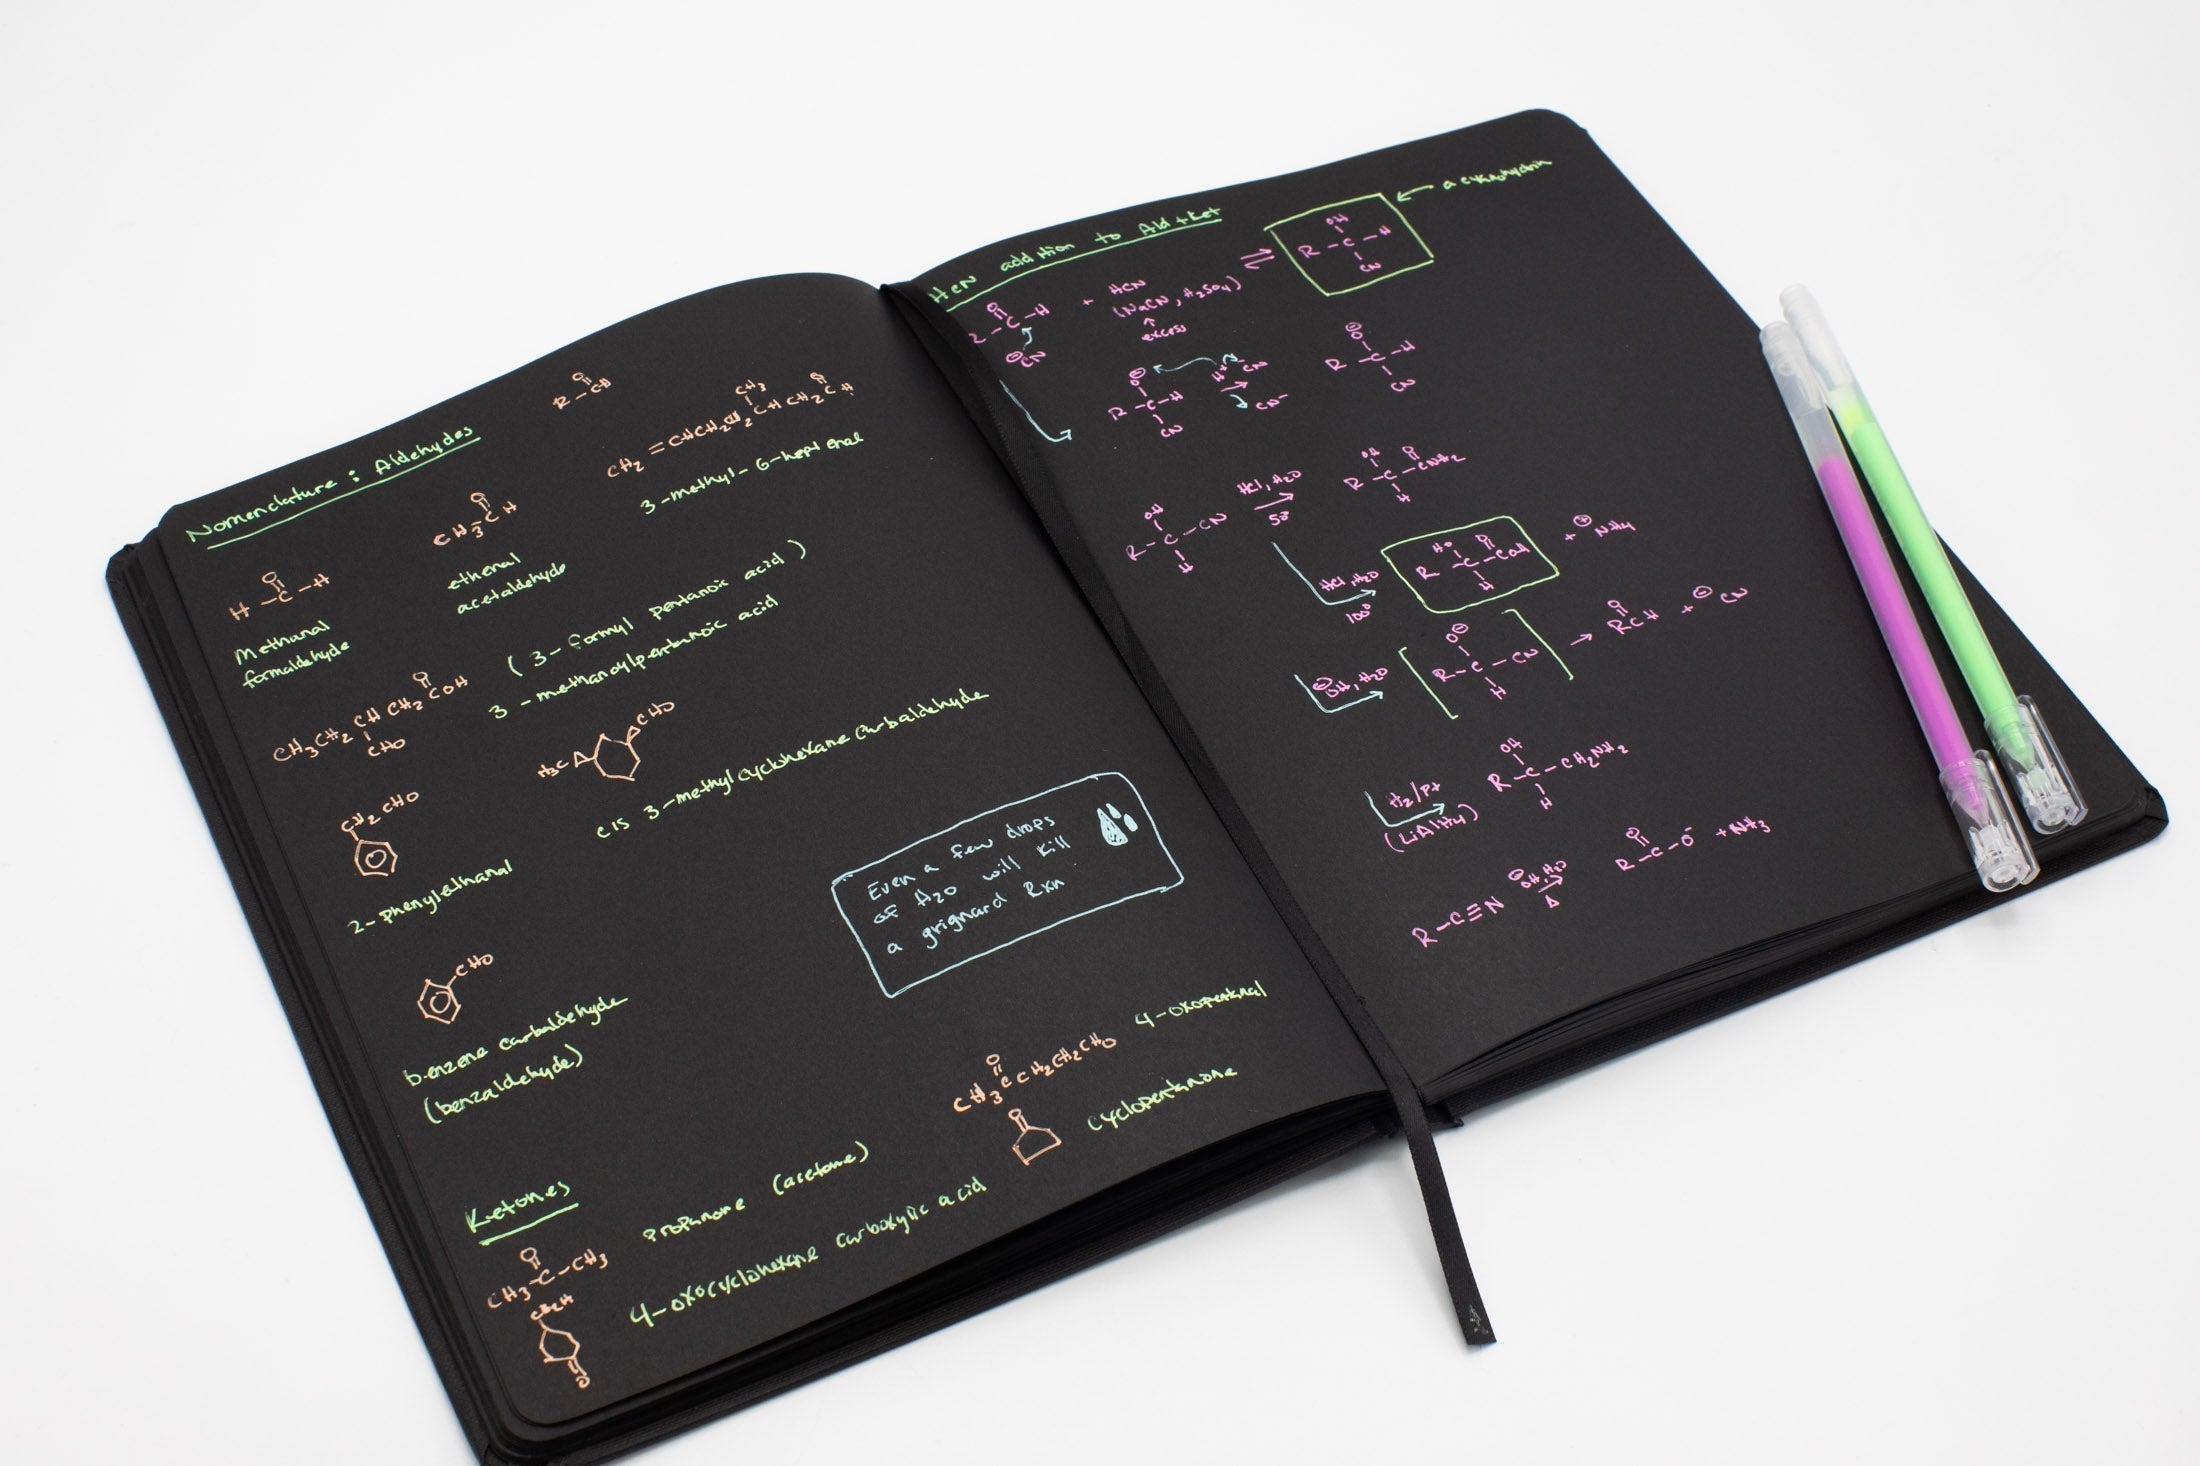 Nomenclature : Aldehydes
R - CH
O
CH3CH
O
ethenal
acetaldehyde
CH2 = CHCH2CH2CHCH2CH
CH3
O
3-methyl-6-heptenal
H - C - H
O
Methanal
formaldehyde
CH3CH2CHCH2COH
O
CHO
(3-formyl pentanoic acid)
3-methanoylpentanoic acid
H3C
CHO
cis 3-methylcyclohexane carbaldehyde
CH2CHO
2-phenylethanal
Even a few drops
of H2O will kill
a grignard Rxn
CHO
benzene carbaldehyde
(benzaldehyde)
CH3CCH2CH2CHO
O
4-oxopentanal
O
cyclopentanone
Ketones
O
CH3-C-CH3
propanone (acetone)
4-oxocyclohexane carboxylic acid
O
HCN addition to Ald + ket
a cyanohydrin
O
C - H
+ HCN
(NaCN, H2SO4)
excess
⊖CN
⇌
OH
R - C - H
CN
O⊖
R - C - H
CN
H+ CN
→
CN-
O⊖
R - C - H
CN
OH
R - C - CN
H
HCl, H2O
50°
OH O
R - C - CNH2
H
HCl, H2O
100°
HO O
R - C - COH
H
+ ⊕NH4
⊖OH, H2O
[ O⊖
R - C - CN
H ]
→ O
RCH + ⊖CN
H2/Pt
(LiAlH4)
OH
R - C - CH2NH2
H
R - C≡N
⊖OH, H2O
Δ
O
R - C - O- + NH3